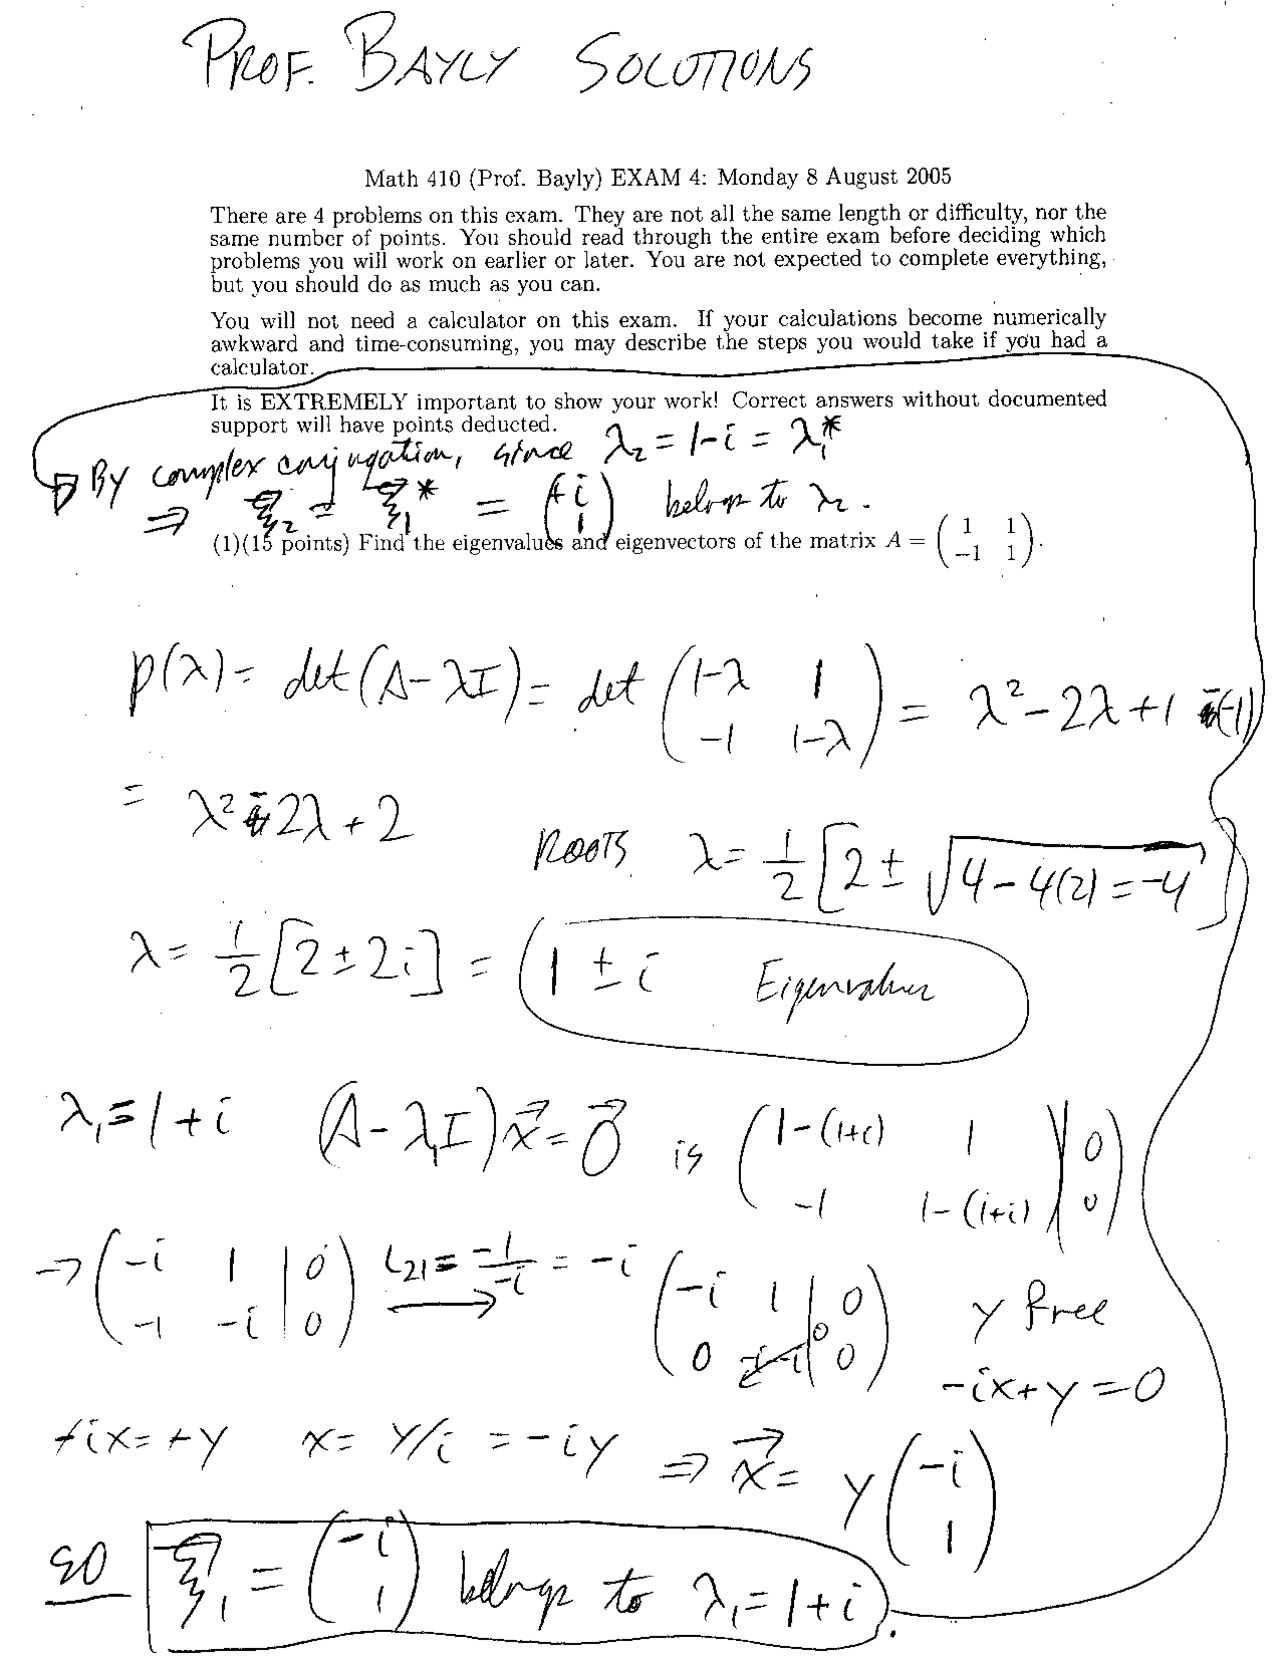 PROF. BAYLY SOLUTIONS
Math 410 (Prof. Bayly) EXAM 4: Monday 8 August 2005
There are 4 problems on this exam. They are not all the same length or difficulty, nor the
same number of points. You should read through the entire exam before deciding which
problems you will work on earlier or later. You are not expected to complete everything,
but you should do as much as you can.
You will not need a calculator on this exam. If your calculations become numerically
awkward and time-consuming, you may describe the steps you would take if you had a
calculator.
It is EXTREMELY important to show your work! Correct answers without documented
support will have points deducted.
By complex conjugation, since λ₂ = 1-i = λ₁*
⇒ ξ⃗₂ = ξ⃗₁* = (+i; 1) belongs to λ₂.
(1)(15 points) Find the eigenvalues and eigenvectors of the matrix A = (1 1; -1 1).
p(λ) = det(A-λI) = det (1-λ 1; -1 1-λ) = λ²-2λ+1 -(-1)
= λ²-2λ+2
ROOTS λ = 1/2 [2 ± √4-4(2) = -4]
λ = 1/2 [2±2i] = 1 ± i Eigenvalues
λ₁ = 1+i (A-λ₁I)x⃗ = 0⃗ is (1-(1+i) 1 | 0; -1 1-(1+i) | 0)
→ (-i 1 | 0; -1 -i | 0) L₂₁ = -1/-i = -i → (-i 1 | 0; 0 0 | 0) y free
-ix+y=0
+ix=+y x = y/i = -iy ⇒ x⃗ = y(-i; 1)
SO ξ⃗₁ = (-i; 1) belongs to λ₁ = 1+i.